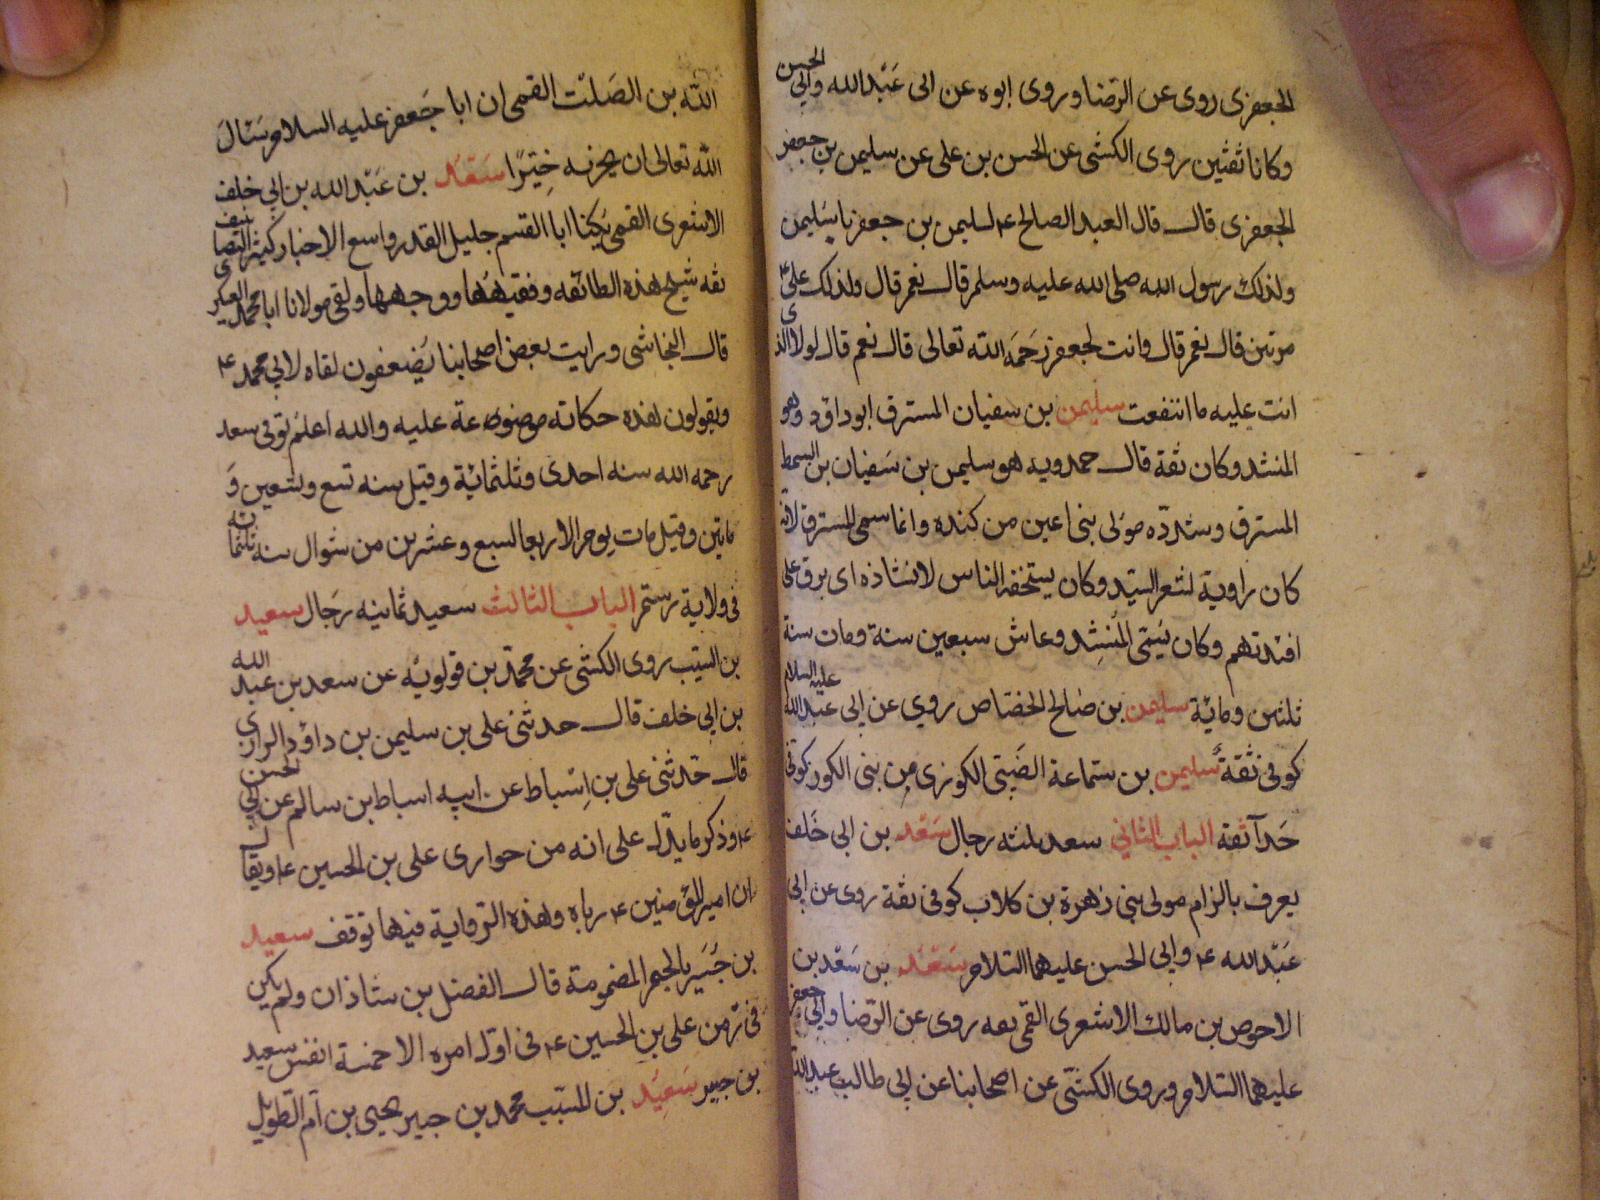 الجعفرى روى عن الرضا وروى ابوه عن ابى عَبْد الله وابي الحسن
وكانا ثقتين روى الكشى عن الحسن بن على عن سليمن بن جعفر
الجعفرى قال قال العبد الصالح ع لسليمن بن جعفر يا سليمن
ولدك رسول الله صلى الله عليه وسلم قال نعم قال ولدك على ع
مرتين قال نعم قال وانت لجعفر رَحمَه الله تعالى قال نعم قال لولا الذى
انت عليه ما انتفعت سليمن بن سفيان المسترق ابو داوٗد وهو
المنشد وكان ثقة قال حمدويه هو سليمن بن سَفيان بن السمط
المسترق وشدّده مولى بنى اعين من كنده وانما سمى المسترق لانه
كان راوية لشعر السيّد وكان يستخفه الناس لانشاده اى يرق على
افئدتهم وكان يسَمّى المُنشِد وعاش سبعين سنة ومات سنة
ثلثين ومائة سليمن بن صَالح الخصّاص روي عن ابى عَبْد الله عليه السلام
كوفى ثقةٌ سليمن بن سماعة الضَبّى الكوزى من بنى الكوز كوفى
حَذّآ ثقة الباب الثاني سعد ثلثه رجال سَعْد بن ابى خَلف
يعرف بالزام مولى بني زهرة بن كلاب كوفى ثقة روى عن ابى
عَبْد الله ع وابي الحسن عليهما السّلام سَعْد بن سَعْد بن
الاحوص بن مالك الاشعرى القمى ثقه روى عن الرّضا وابي جعفر
عليهما السّلام وروى الكشّى عن اصحابنا عن ابى طالب عبد الله
الله بن الصَلْت القمى ان ابا جَعفر عليه السلام سَئالَ
الله تعالى ان يجزيه خَيرًا سَعْد بن عَبْد الله بن ابي خلف
الاشعرى القمى يكنا ابا القسم جليل القدر واسع الاخبار كثير التصانيف
ثقه شيخ هذه الطائفه وفقيهُها ووجهها ولقى مولانا ابا محمد العسكرى
قال النجاشى ورايت بعض اصحابنا يُضعفون لقاه لابي محمد ع
ويقولون هذه حكاته موضوعة عليه والله اعلم توفى سعد
رحمه الله سنه احدى وثلثمائة وقيل سنه تسع وتسعين وَ
ماتين وقيل مات يوم الاربعا لسبع وعشرين من شوال سنه ثلثمائه
فى ولاية رستم الباب الثالث سعيد ثمانيه رجَال سعيد
بن المسيّب روى الكشى عن محمّد بن قولويه عن سعد بن عبد الله
بن ابي خلف قال حدثنى على بن سليمن بن داوٗد الرازى
قال حَدثنى على بن اِسْباط عن ابيه اسباط بن سالم عن ابي الحسن
ع وذكر ما يدّل على انه من حوارى على بن الحسين ع ويقال
ان امير المؤمنين ع رباه وهذه الرّواية فيها توقف سعيد
بن جُبَير بالجيم المضمومة قال الفضل بن شاذان ولم يكن
فى زمن على بن الحسين ع فى اوّل امره الا خمسة انفس سعيد
بن جبير سَعيْد بن المسيّب محمد بن جبير يحيى بن اُم الطويل